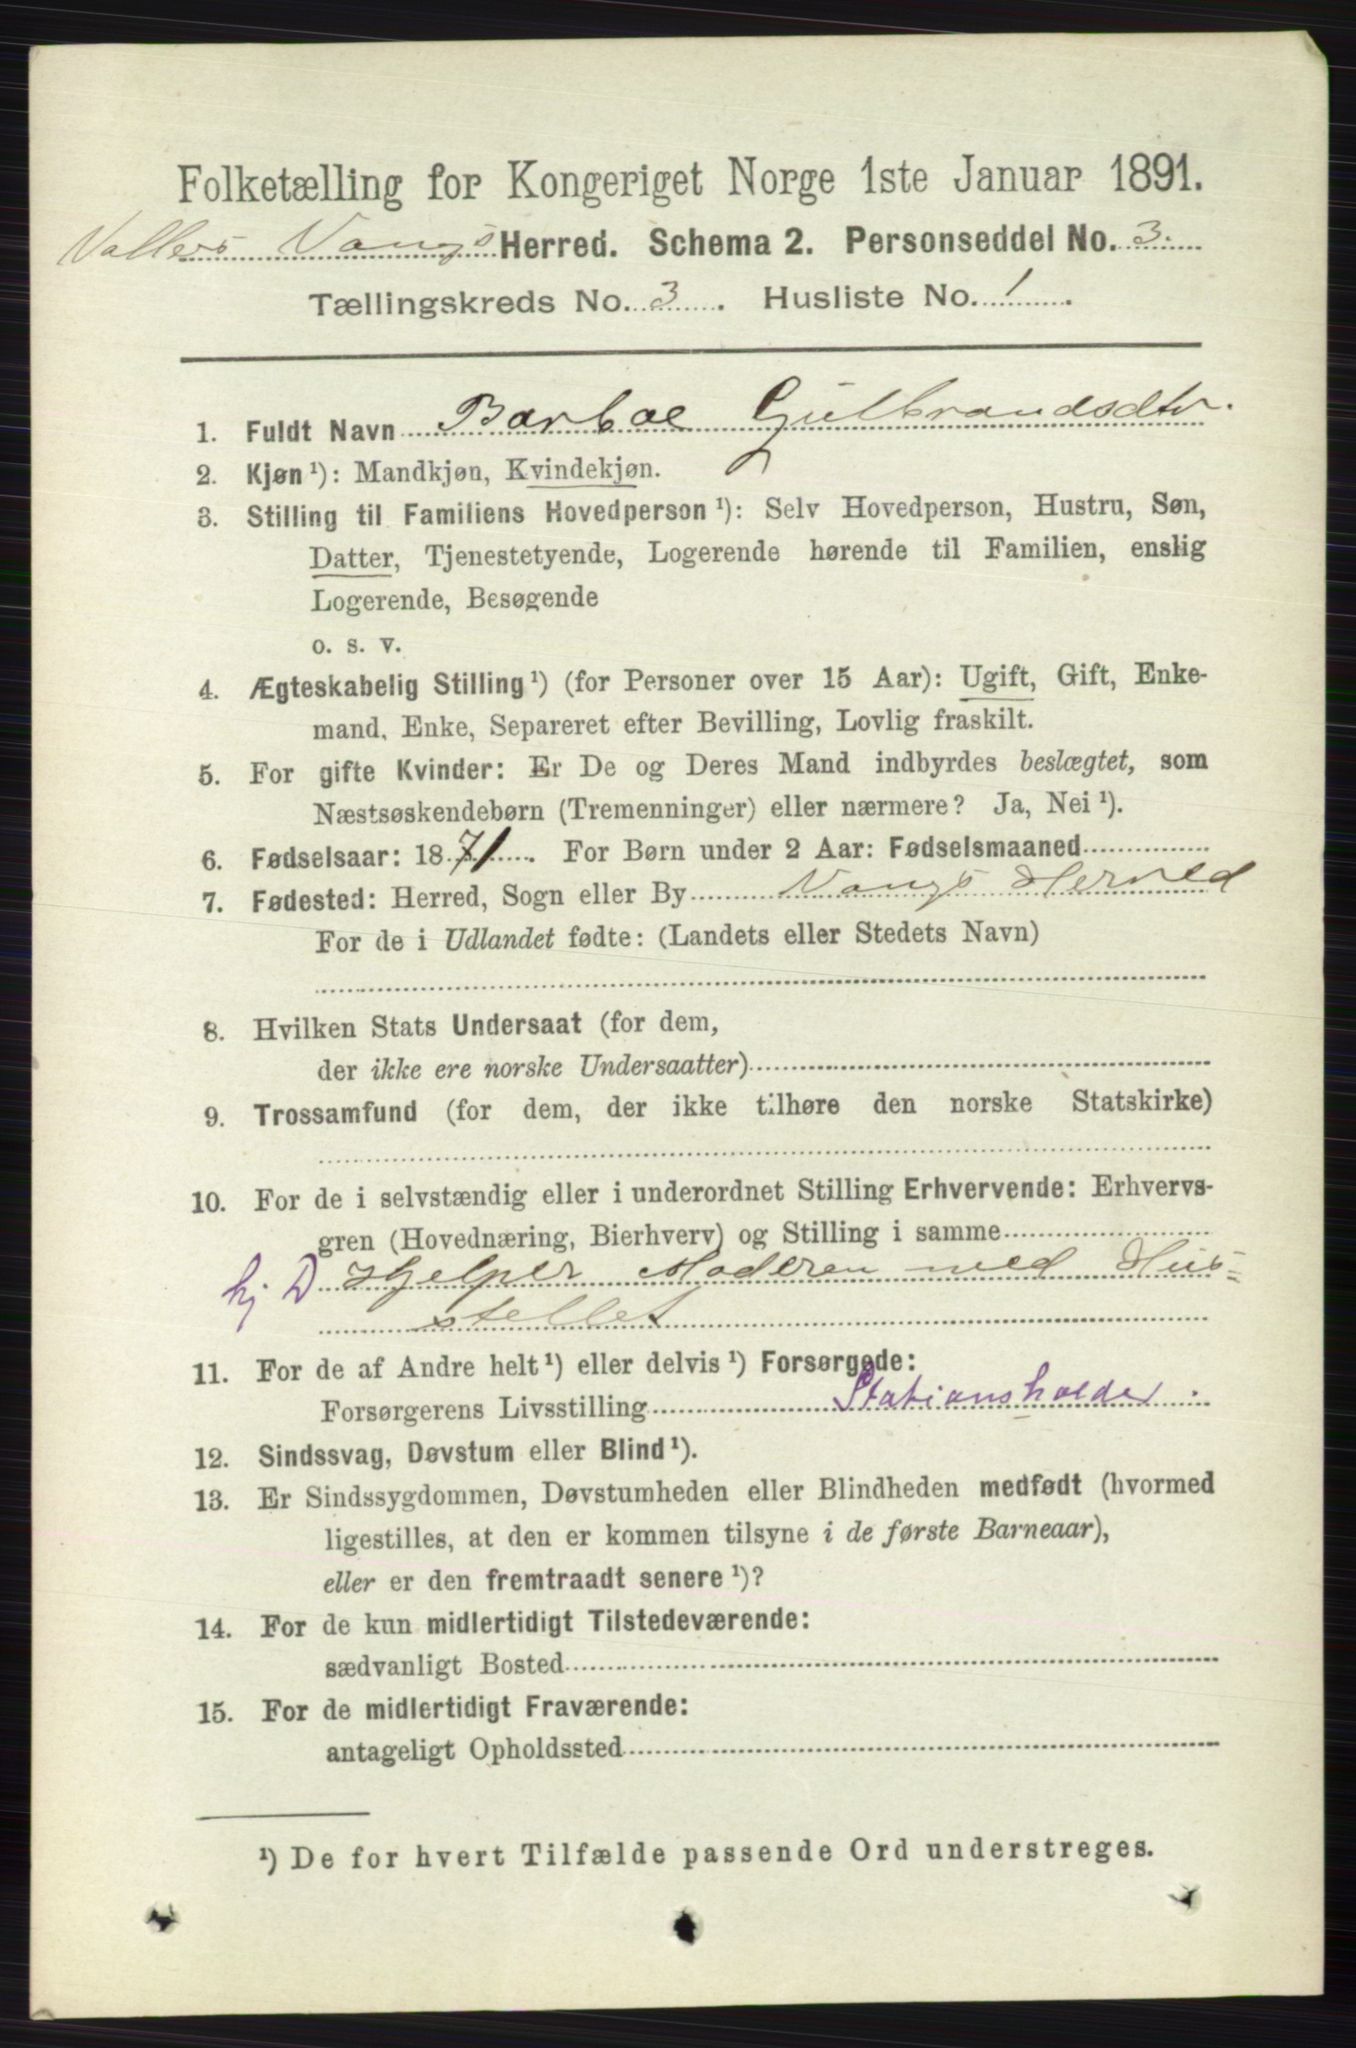 Folketælling for Kongeriget Norge 1ste Januar 1891.
Vallers Vangs Herred. Schema 2. Personseddel No. 3.
Tællingskreds No. 3. Husliste No. 1.
1. Fuldt Navn Barboe Gulbrandsdtr.
2. Kjøn ¹): Mandkjøn, Kvindekjøn.
3. Stilling til Familiens Hovedperson ¹): Selv Hovedperson, Hustru, Søn,
Datter, Tjenestetyende, Logerende hørende til Familien, enslig
Logerende, Besøgende
o. s. v.
4. Ægteskabelig Stilling ¹) (for Personer over 15 Aar): Ugift, Gift, Enke-
mand, Enke, Separeret efter Bevilling, Lovlig fraskilt.
5. For gifte Kvinder: Er De og Deres Mand indbyrdes beslægtet, som
Næstsøskendebørn (Tremenninger) eller nærmere? Ja, Nei ¹).
6. Fødselsaar: 1871. For Børn under 2 Aar: Fødselsmaaned
7. Fødested: Herred, Sogn eller By Vangs Herred
For de i Udlandet fødte: (Landets eller Stedets Navn)
8. Hvilken Stats Undersaat (for dem,
der ikke ere norske Undersaatter)
9. Trossamfund (for dem, der ikke tilhøre den norske Statskirke)
10. For de i selvstændig eller i underordnet Stilling Erhvervende: Erhvervs-
gren (Hovednæring, Bierhverv) og Stilling i samme
hj D Hjelper Moderen med Hus=
stellet
11. For de af Andre helt ¹) eller delvis ¹) Forsørgede:
Forsørgerens Livsstilling Stationsholder.
12. Sindssvag, Døvstum eller Blind ¹).
13. Er Sindssygdommen, Døvstumheden eller Blindheden medfødt (hvormed
ligestilles, at den er kommen tilsyne i de første Barneaar),
eller er den fremtraadt senere ¹)?
14. For de kun midlertidigt Tilstedeværende:
sædvanligt Bosted
15. For de midlertidigt Fraværende:
antageligt Opholdssted
¹) De for hvert Tilfælde passende Ord understreges.